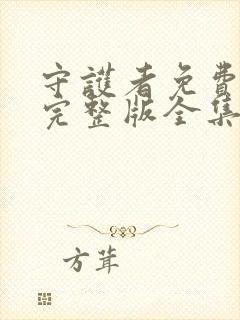 守護者免費
完整版全集
方茸